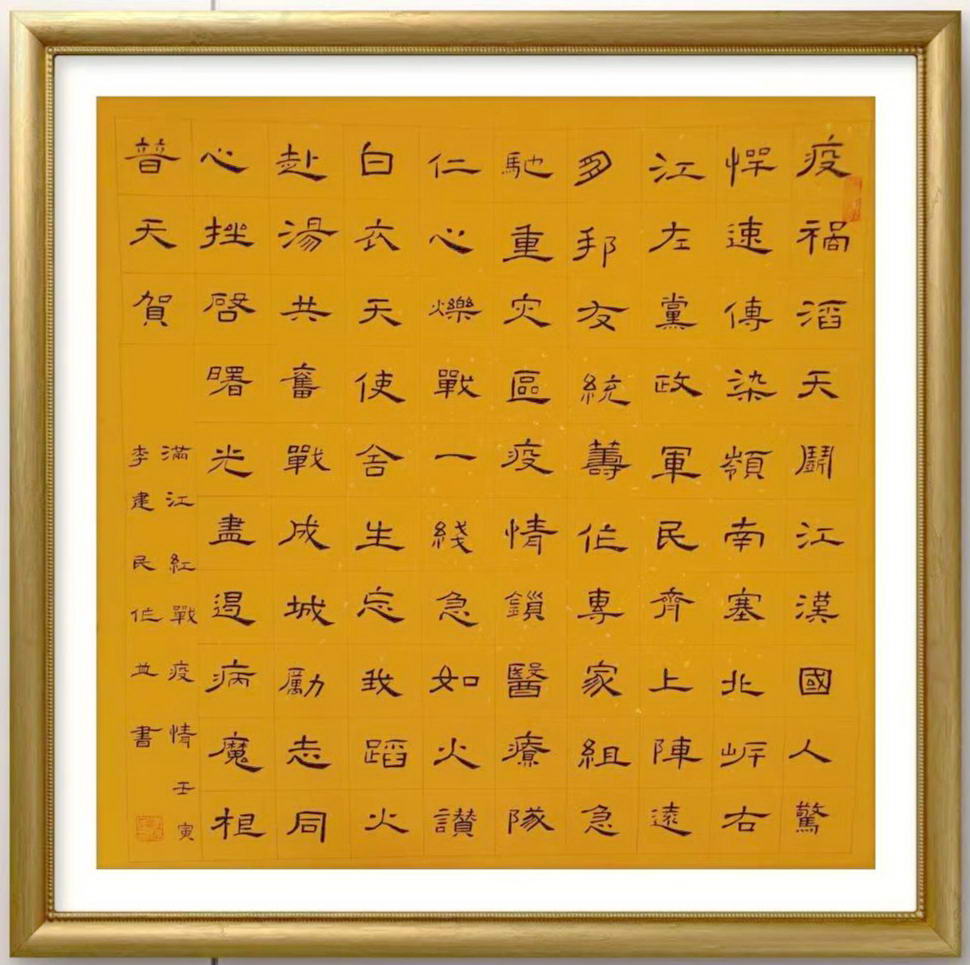 疫禍滔天鬪江漢國人驚
悍速傳染嶺南塞北㟁右
江左黨政軍民齊上陣遠
多邦友統籌作專家組急
馳重灾區疫情鎖醫療隊
仁心爍戰一綫急如火讚
白衣天使舍生忘我蹈火
赴湯共奮戰成城勵志同
心挫啓曙光盡遏病魔柤
普天賀
滿江紅戰疫情壬寅
李建民作並書